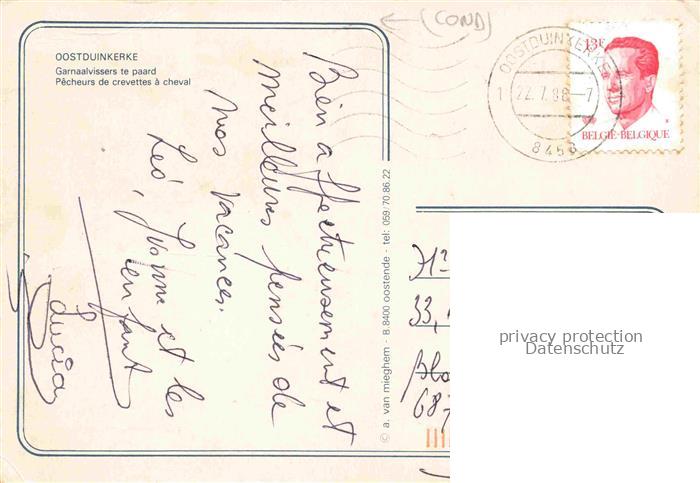 (COND)
OOSTDUINKERKE
Garnaalvissers te paard
Pêcheurs de crevettes à cheval
OOSTDUINKERKE
1 22.7.88-7
8458
13F
BELGIE-BELGIQUE
Bien affectueusement et
meilleures pensées de
nos vacances.
Léo, Yvonne et les
enfant
Lucia
© a. van mieghem - B.8400 oostende - tel: 059/70.86.22
33,
privacy protection
Datenschutz